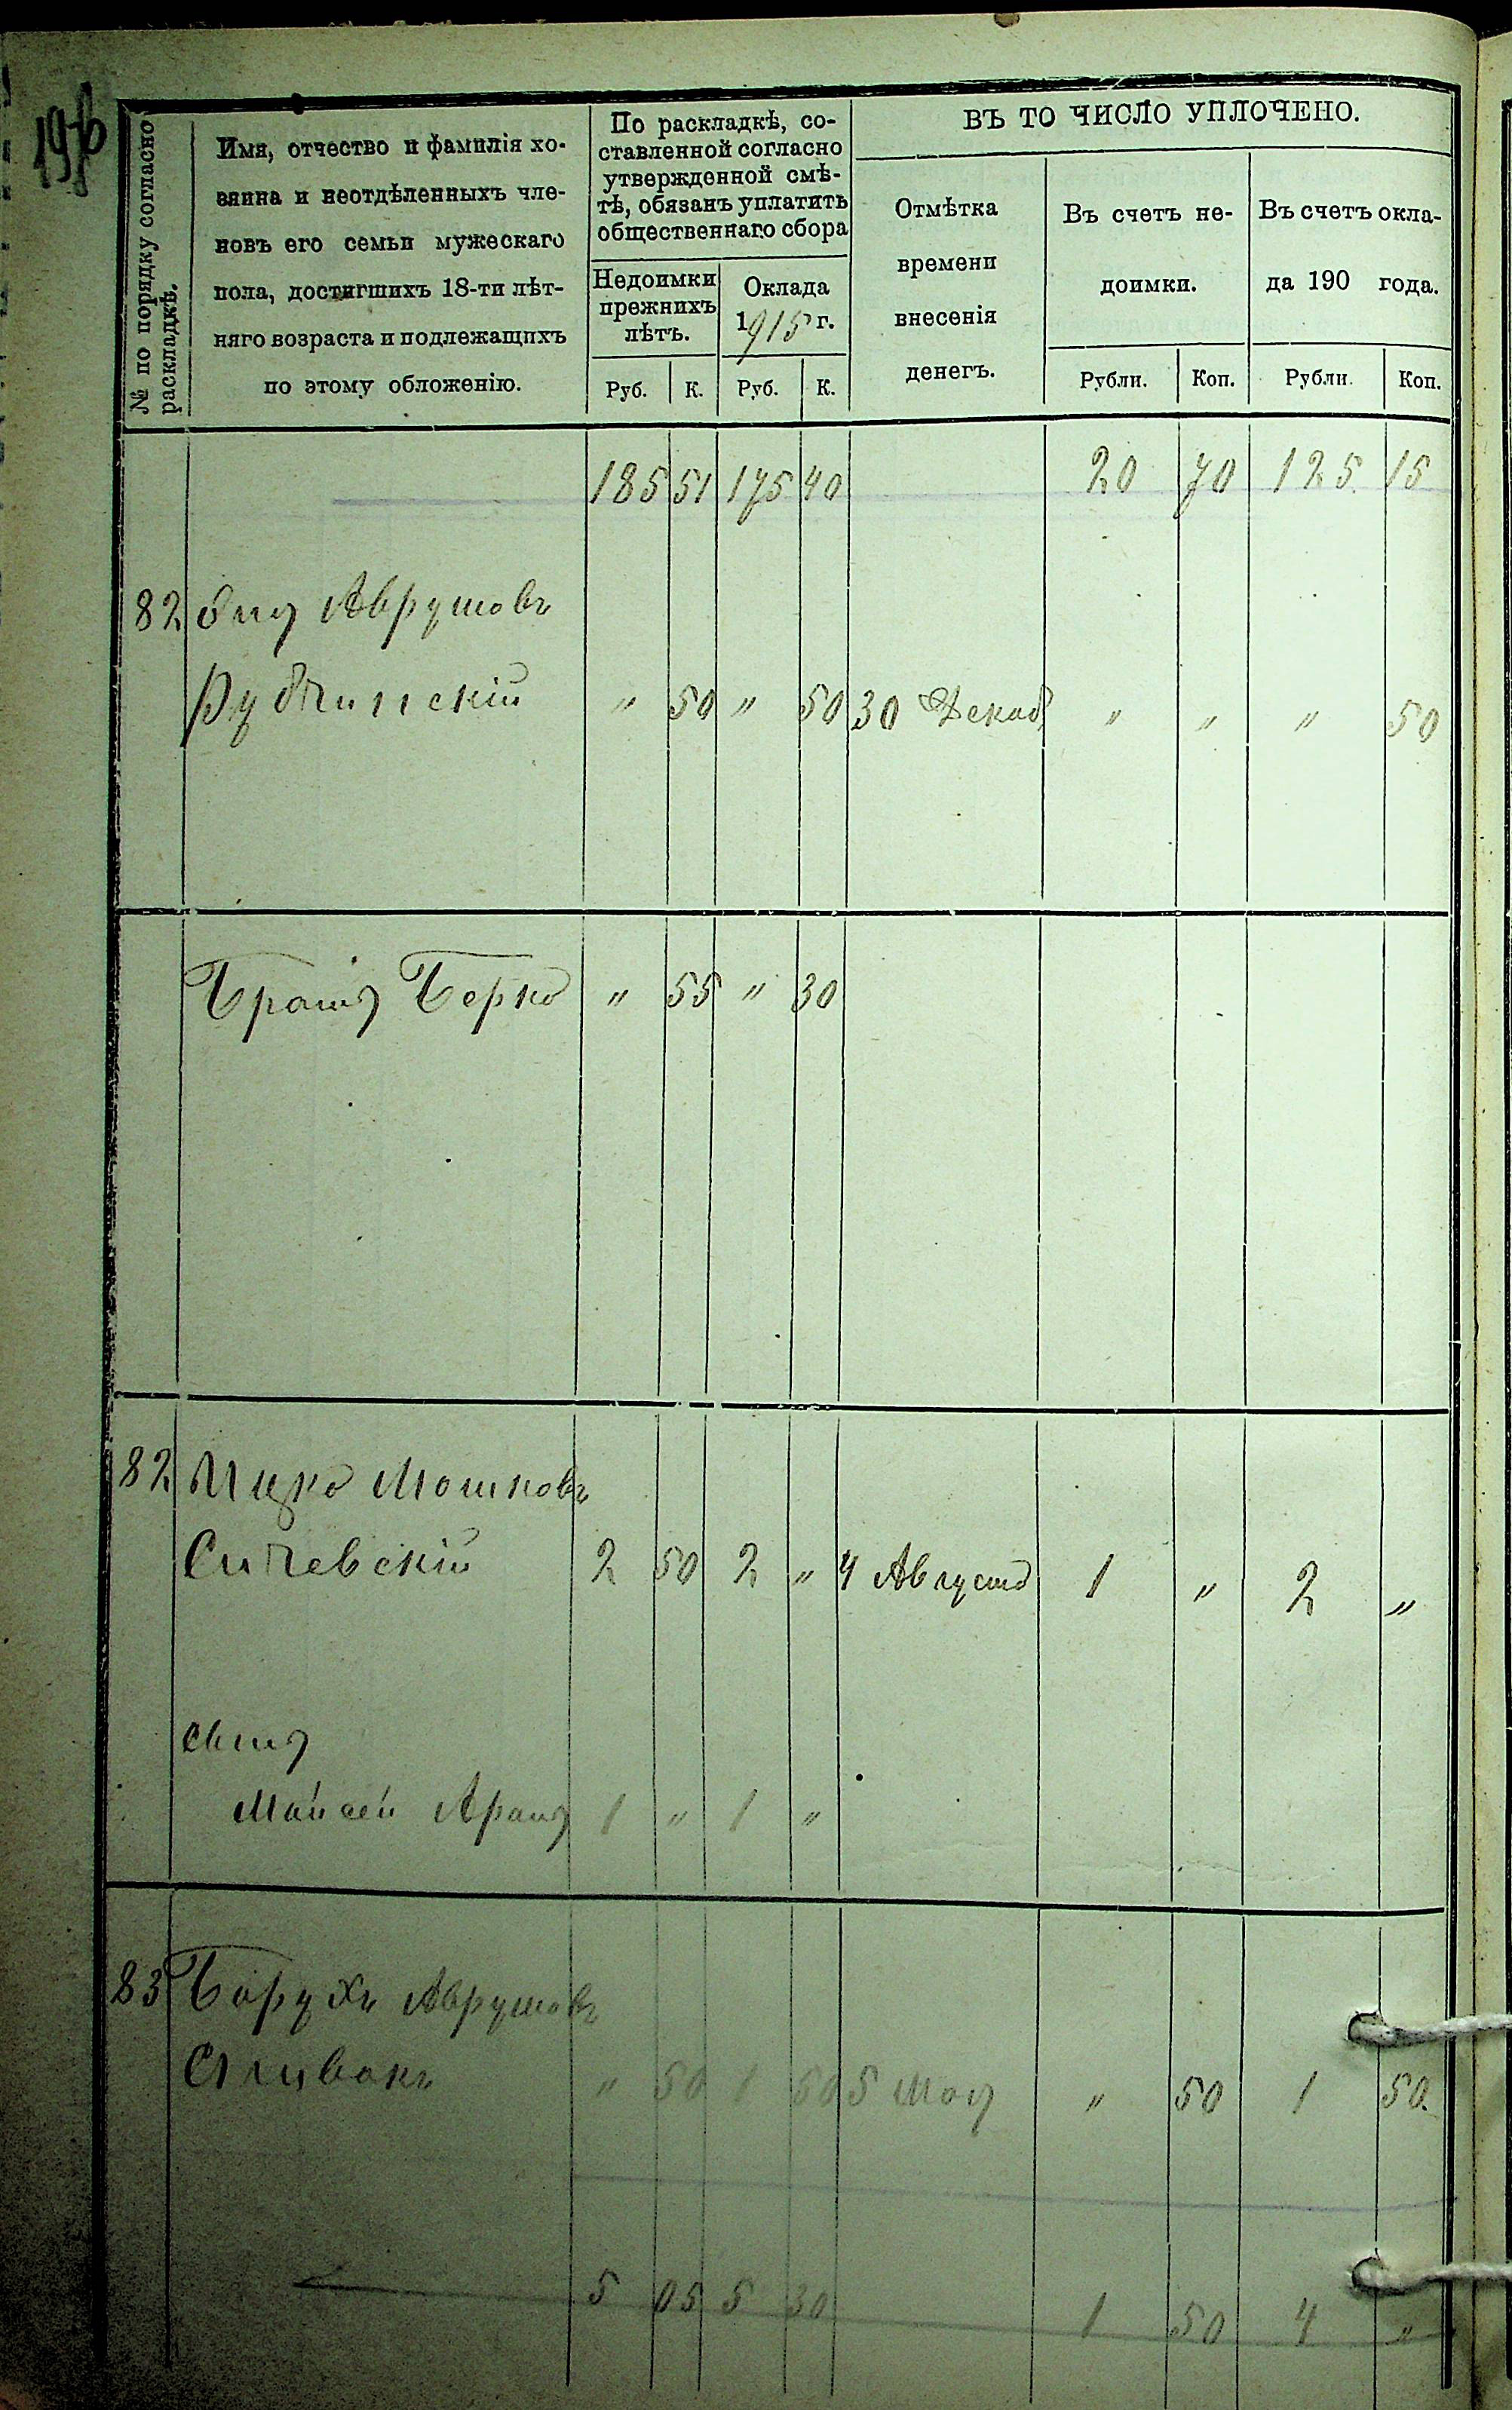 № по порядку согласно раскладкѣ.
Имя, отчество и фамилія хо-
зяина и неотдѣленныхъ чле-
новъ его семьи мужескаго
пола, достигшихъ 18-ти лѣт-
няго возраста и подлежащихъ
по этому обложенію.
По раскладкѣ, со-
ставленной согласно
утвержденной смѣ-
тѣ, обязанъ уплатить
общественнаго сбора
Недоимки
прежнихъ
лѣтъ.
Оклада
1915 г.
Руб. К. Руб. К.
ВЪ ТО ЧИСЛО УПЛОЧЕНО.
Отмѣтка
времени
внесенія
денегъ.
Въ счетъ не-
доимки.
Въ счетъ окла-
да 190 года.
Рубли. Коп. Рубли. Коп.
185 51 175 40 20 70 125 15
82 Аврумовъ
" 50 " 50 30 Декаб " " " 50
Братъ Берко " 55 " 30
82 Ицко Мошковъ
Ситевскій 2 50 2 " 4 Августа 1 " 2 "
сынъ
Мойсей Аронъ 1 " 1 "
83 Борухъ Аврумовъ
Спивакъ " 50 1 50 5 Мая " 50 1 50
5 05 5 30 1 50 4 "